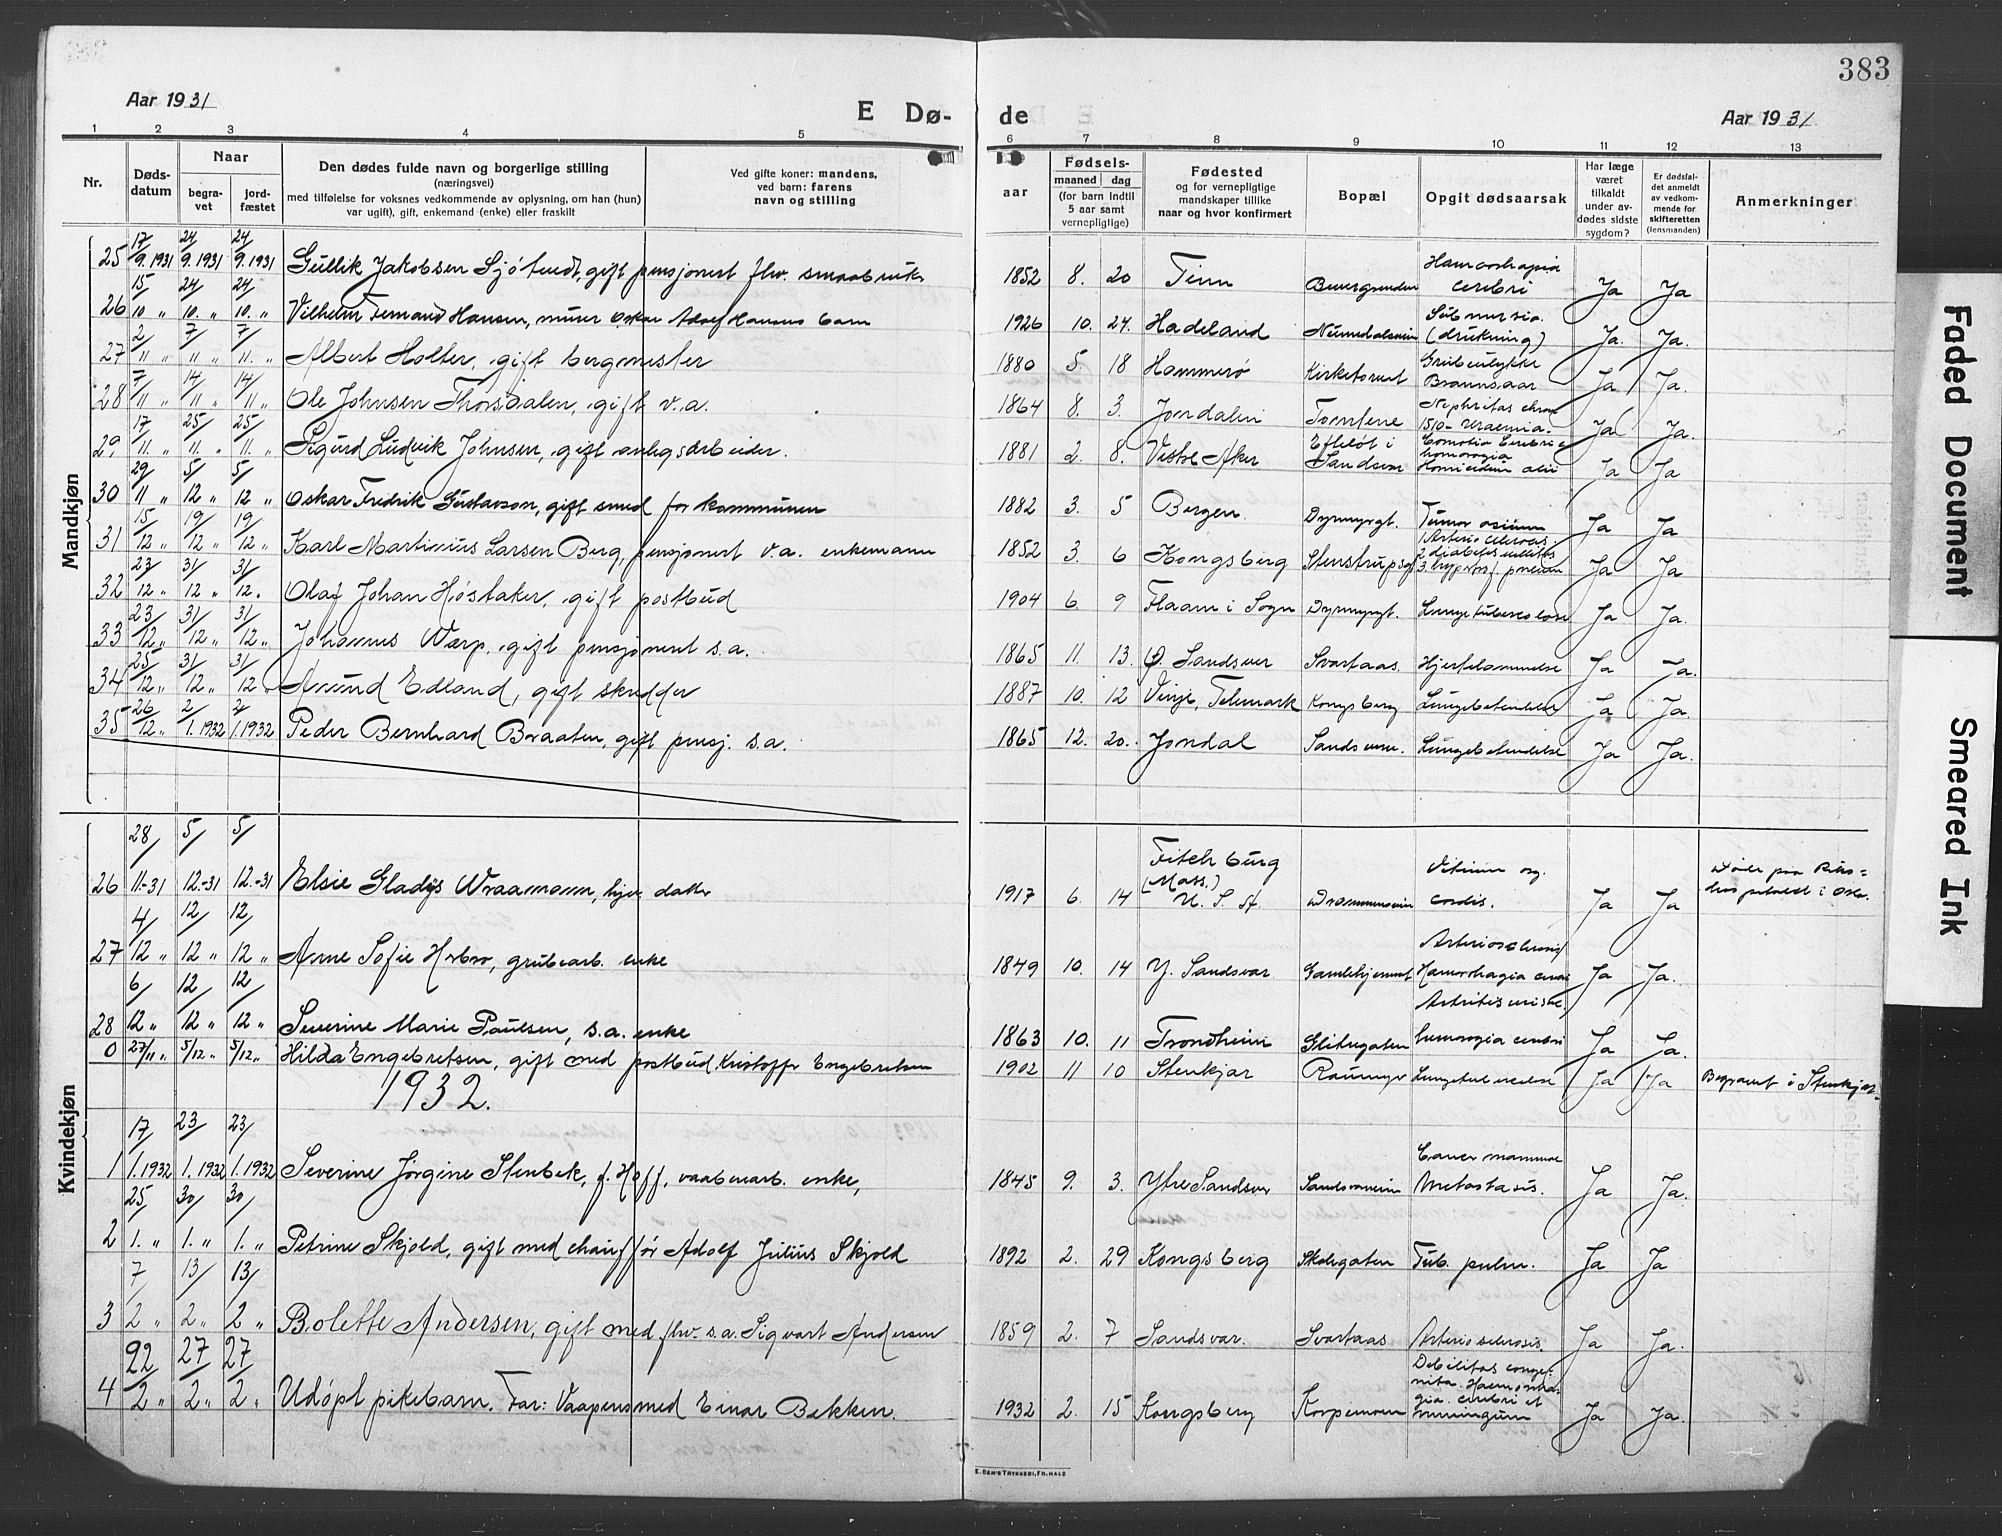 383
Aar 1931
E Dø-
de
Aar 1931
1 2 3 4 5 6 7 8 9 10 11 12 13
Nr.
Døds-
datum
Naar
begra-
vet
jord-
fæstet
Den dødes fulde navn og borgerlige stilling
(næringsvei)
med tilføielse for voksnes vedkommende av oplysning, om han (hun)
var ugift), gift, enkemand (enke) eller fraskilt
Ved gifte koner: mandens,
ved barn: farens
navn og stilling
aar
Fødsels-
maaned dag
(for barn indtil
5 aar samt
vernepligtige)
Fødested
og for vernepligtige
mandskaper tillike
naar og hvor konfirmert
Bopæl
Opgit dødsaarsak
Har læge
været
tilkaldt
under av-
dødes sidste
sygdom?
Er dødsfal-
det anmeldt
av vedkom-
mende for
skifteretten
(lensmanden)
Anmerkninger
Mandkjøn
25 17/9.1931 24/9.1931 24/9.1931 Gullik Jakobsen gift pensjonert fhv. smaabruker 1852 8. 20 Tinn Ja Ja
26 15/10 " 24/10. " 24/10. " Vilhelm Fernand Hansen, murer Oskar Adolf Hansens barn 1926 10. 24. Hadeland Numedalsvein Submersio. (drukning) Ja. Ja.
27 2/11 " 7/11 " 7/11. " Albert Holter, gift bergmester 1880 5. 18 Hammerø Kirketorvet Grubeulykke Ja Ja.
28 7/11 " 14/11 " 14/11 " Ole Johnsen Thorsdalen, gift v.a. 1864 8. 3. Jondalen Tomtene Nephritis chron Uraemia. Ja Ja.
29. 17/11. " 25/11. " 25/11. " Sigurd Ludvik Johnsen, gift anlegsarbeider. 1881 2. 8. Vestre Aker Efteløt i Sandsvær Comotio Cerebri Ja Ja
30 29/11 " 5/12 " 5/12 " Oskar Fredrik Gustavson, gift smed for kommunen 1882 3. 5 Bergen. Dyrmyrgt. Tumor Ja Ja
31 15/12 " 19/12 " 19/12 " Karl Martinius Larsen Berg, pensjonert v.a. enkemann 1852 3. 6 Kongsberg Ja Ja
32 23/12 " 31/12 " 31/12. Olaf Johan Høstaker, gift postbud 1904 6. 9 Flaam i Sogn Dyrmyrgt. Lungetuberculose Ja Ja.
33 23/12 " 31/12 " 31/12 " Johannes Warp, gift pensjonert s.a. 1865 11. 13. Ø. Sandsver Svartaas. Hjertelammelse Ja Ja.
34 25/12 " 31/12 " 31/12 " Amund Edland, gift skredder 1887 10. 12 Vinje, Telemark Kongsberg Lungebetendelse Ja Ja.
35 26/12 " 2/1.1932 2/1.1932 Peder Bernhard Braaten, gift pensj. s.a. 1865 12. 20. Jondal Lungebetendelse Ja Ja.
Kvindekjøn
26 28/11.-31 5/12.-31 5/12.-31 Elsie Gladys Wraamann, hjem. datter 1917 6. 14 Fitchburg (Mass.) U. S. A. Drammensvein Vitium og. cordis. Ja Ja Døde paa Riks= hospitalet i Oslo.
27 4/12 " 12/12 " 12/12 " Anne Sofie grubearb. enke 1849 10. 14 Y. Sandsvær Gamlehjemmet Arteriosclerosis Hæmorrhagia cerebri Ja Ja.
28 6/12 " 12/12 " 12/12 " Severine Marie Paulsen, s.a. enke 1863 10. 11 Trondheim Glitregaten hemoragia cerebri Ja Ja.
0 27/11 " 5/12 " 5/12 " Hilda Engebretsen, gift med postbud Kristoffer Engebretsen 1902 11 10 Stenkjær Raumyr Lungetuberculose Ja Ja Begravet i Stenkjær.
1932.
1 17/1.1932 23/1.1932 23/1.1932 Severine Jørgine Stenbek, f. Hoff, vaabenarb. enke, 1845 9. 3. Ytre Sandsver Sandsværveien Cancer mammae Metastasis. Ja Ja.
2 25/1. " 30/1. " 30/1. " Petrine Skjold, gift med chauffør Adolf Julius Skjold 1892 2. 29 Kongsberg Skolegaten Tub. pulm. Ja Ja
3 7/2 " 13/2 " 13/2 " Bolette Andersen, gift med fhv. s.a. Sigvart Andersen 1859 2. 7 Sandsvær. Svartaas Arteriosclerosis. Ja Ja.
4 22/2 " 27/2 " 27/2 " Udøpt pikebarn. Far: Vaapensmed Einar Bekken. 1932 2. 15 Kongsberg Korpemoen Debilitas conge- nita. Haemorrha- gia cerebri et meningum Ja Ja.
E. SEM'S TRYKKERI, FR.HALD
Faded Document
Smeared Ink